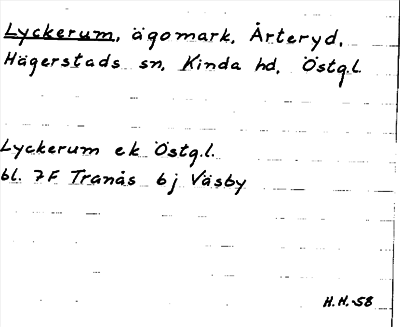 Lyckerum, ägomark, Årteryd,
Hägerstads sn, Kinda hd, Östg.l.
Lyckerum ek Östg.l.
bl. 7F Tranås bj Väsby
H.H.-58